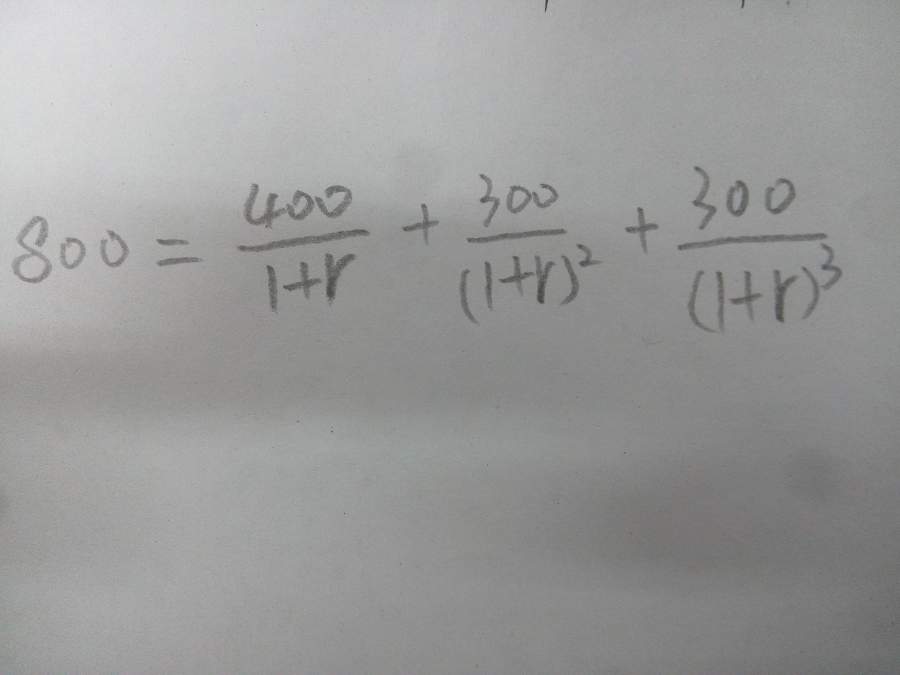 800 = \frac{400}{1+r} + \frac{300}{(1+r)^2} + \frac{300}{(1+r)^3}